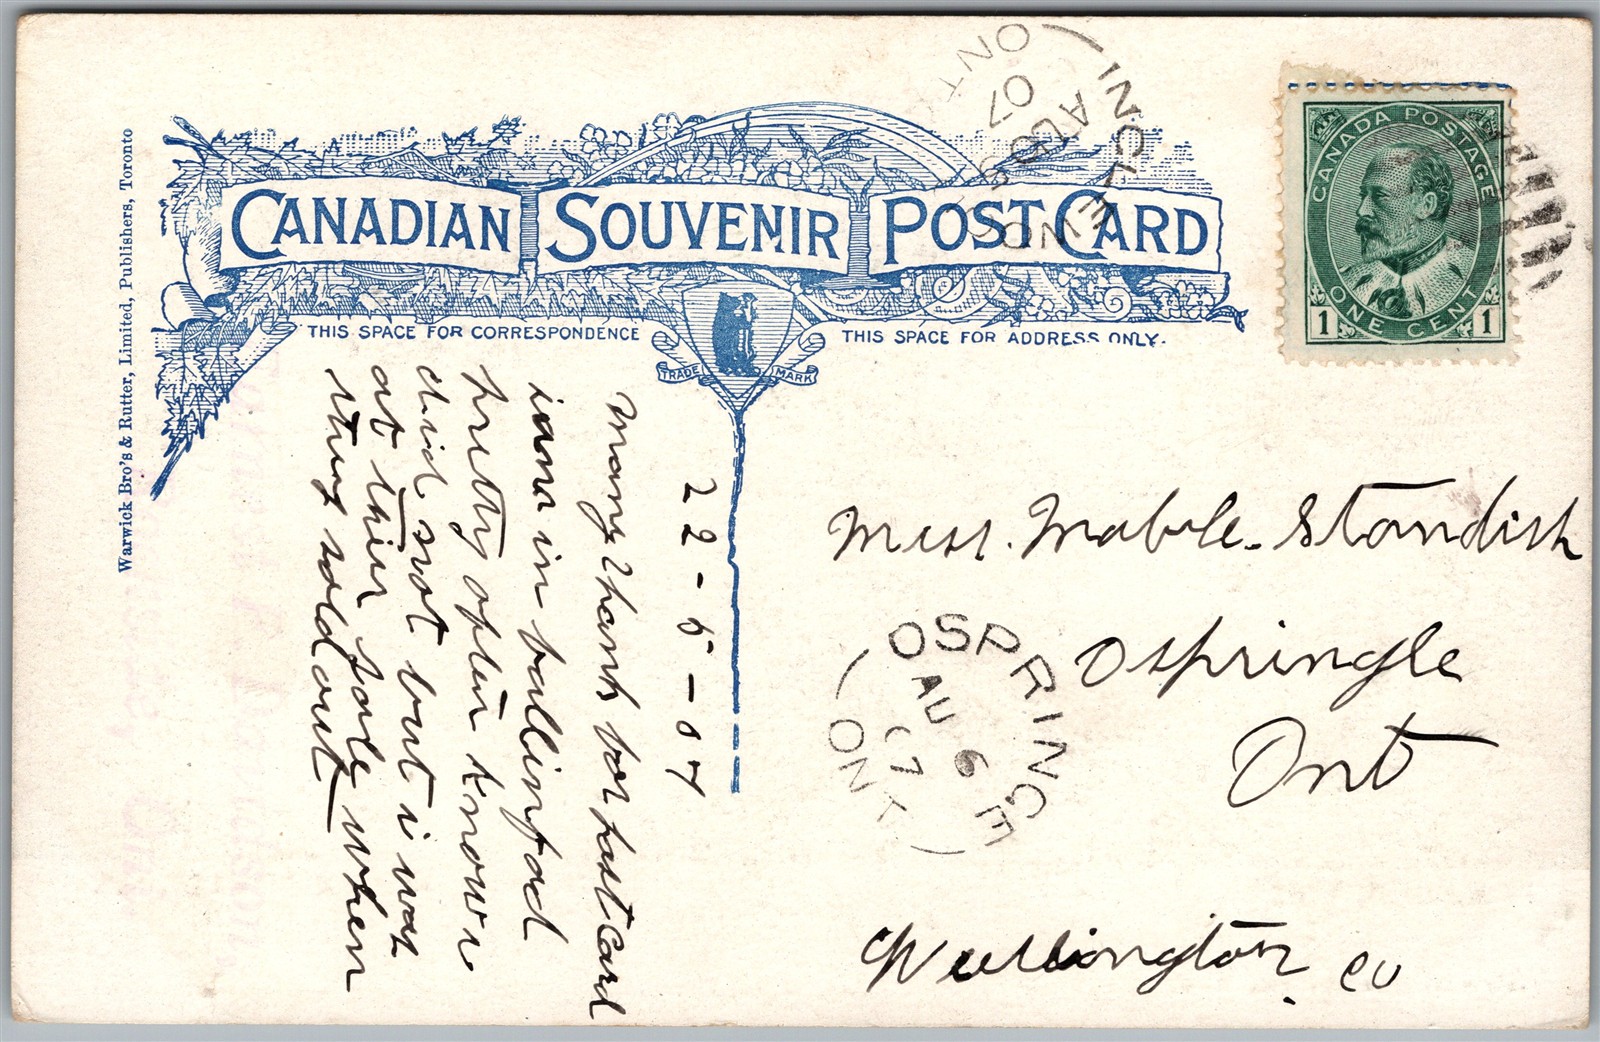 CANADIAN SOUVENIR POST CARD
THIS SPACE FOR CORRESPONDENCE
THIS SPACE FOR ADDRESS ONLY.
TRADE MARK
Warwick Bro's & Rutter, Limited, Publishers, Toronto
CANADA POSTAGE
1 ONE CENT 1
ONT
07
22-5-07
Many thanks for post Card
i am in ballinfad
pretty often know i
did not but i was
at thier sale when
thuy sold out
Miss. Mable. Standish
Ospringle
Ont
OSPRINGE
AU 6
07
ONT
Wellington. co